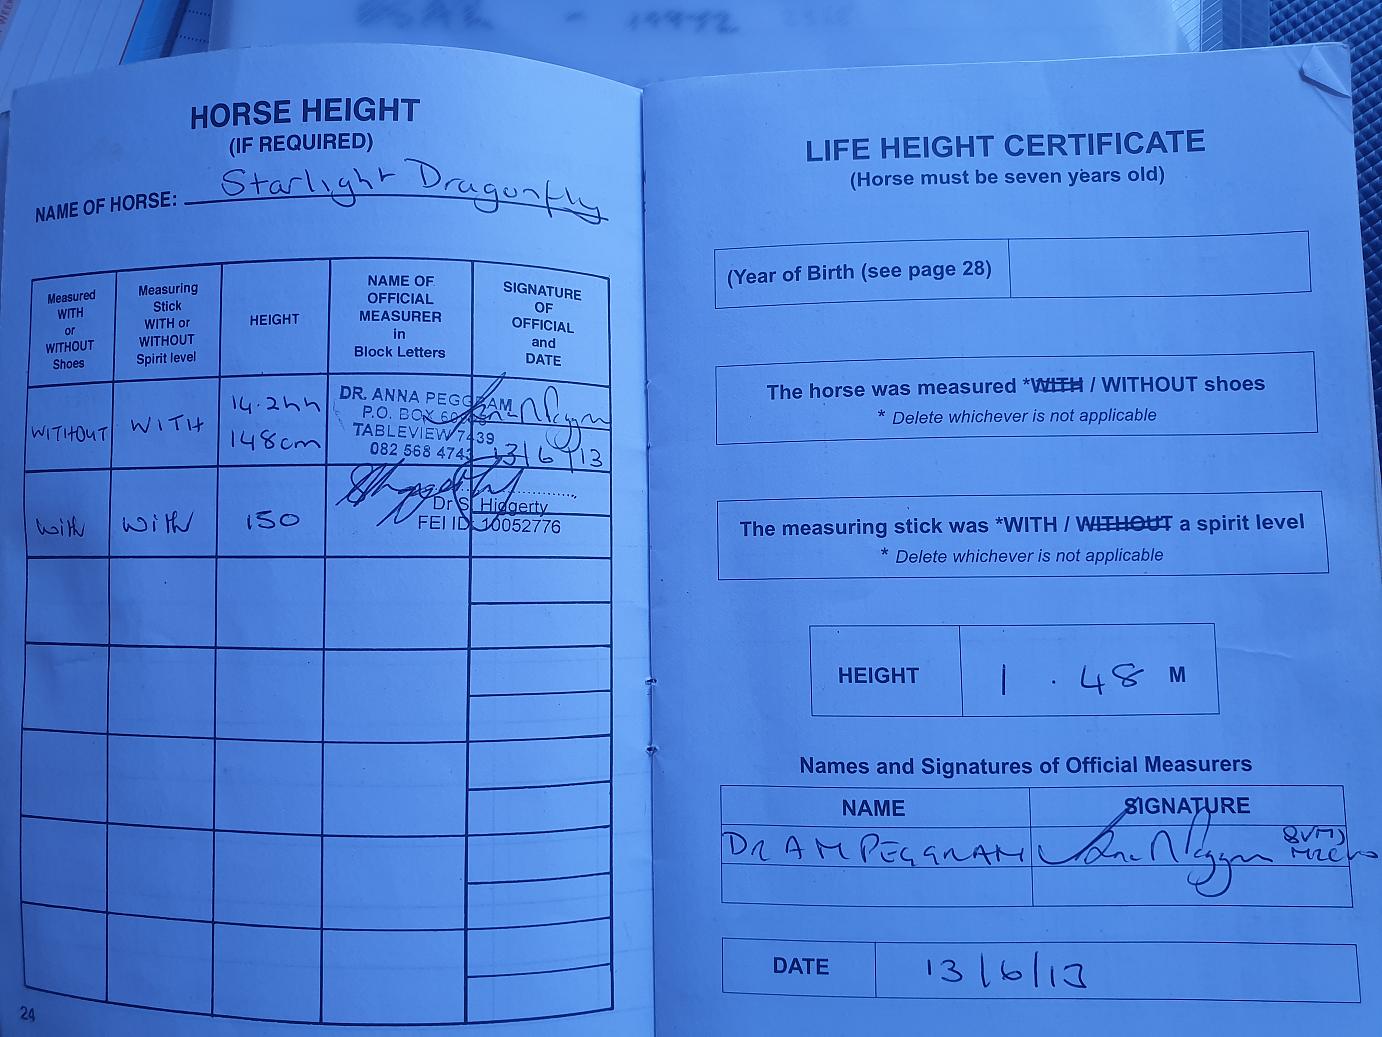 HORSE HEIGHT
(IF REQUIRED)
NAME OF HORSE: Starlight Dragonfly
Measured
WITH
or
WITHOUT
Shoes
Measuring
Stick
WITH or
WITHOUT
Spirit level
HEIGHT
NAME OF
OFFICIAL
MEASURER
in
Block Letters
SIGNATURE
OF
OFFICIAL
and
DATE
WITHOUT
WITH
14.2hh
148cm
DR. ANNA PEGGRAM
P.O. BOX
TABLEVIEW 7439
082 568 474
13/6/13
With
With
150
Dr S Higgerty
FEI ID: 10052776
24
LIFE HEIGHT CERTIFICATE
(Horse must be seven years old)
(Year of Birth (see page 28)
The horse was measured *WITH / WITHOUT shoes
* Delete whichever is not applicable
The measuring stick was *WITH / WITHOUT a spirit level
* Delete whichever is not applicable
HEIGHT 1.48 M
Names and Signatures of Official Measurers
NAME SIGNATURE
DR A M PEGGRAM
DATE 13/6/13